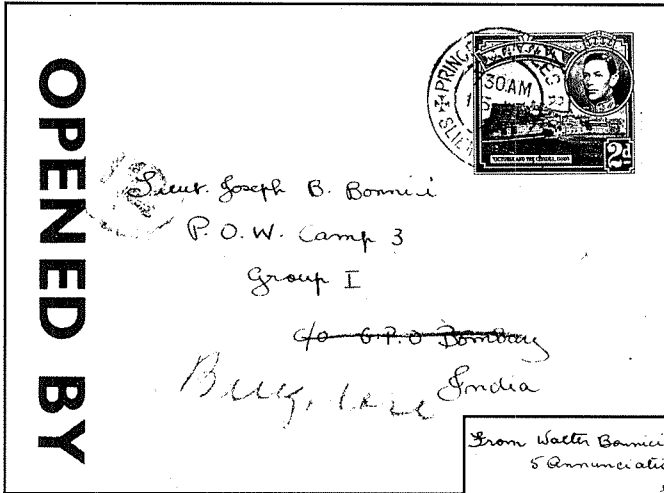 OPENED BY
PRINC
30 AM
VICTORIA AND THE CITADEL, GOZO
2d
Lieut. Joseph B. Bonnici
P.O.W. Camp 3
Group I
c/o G.P.O Bombay
India
From Walter Bonnici
5 Annunciati